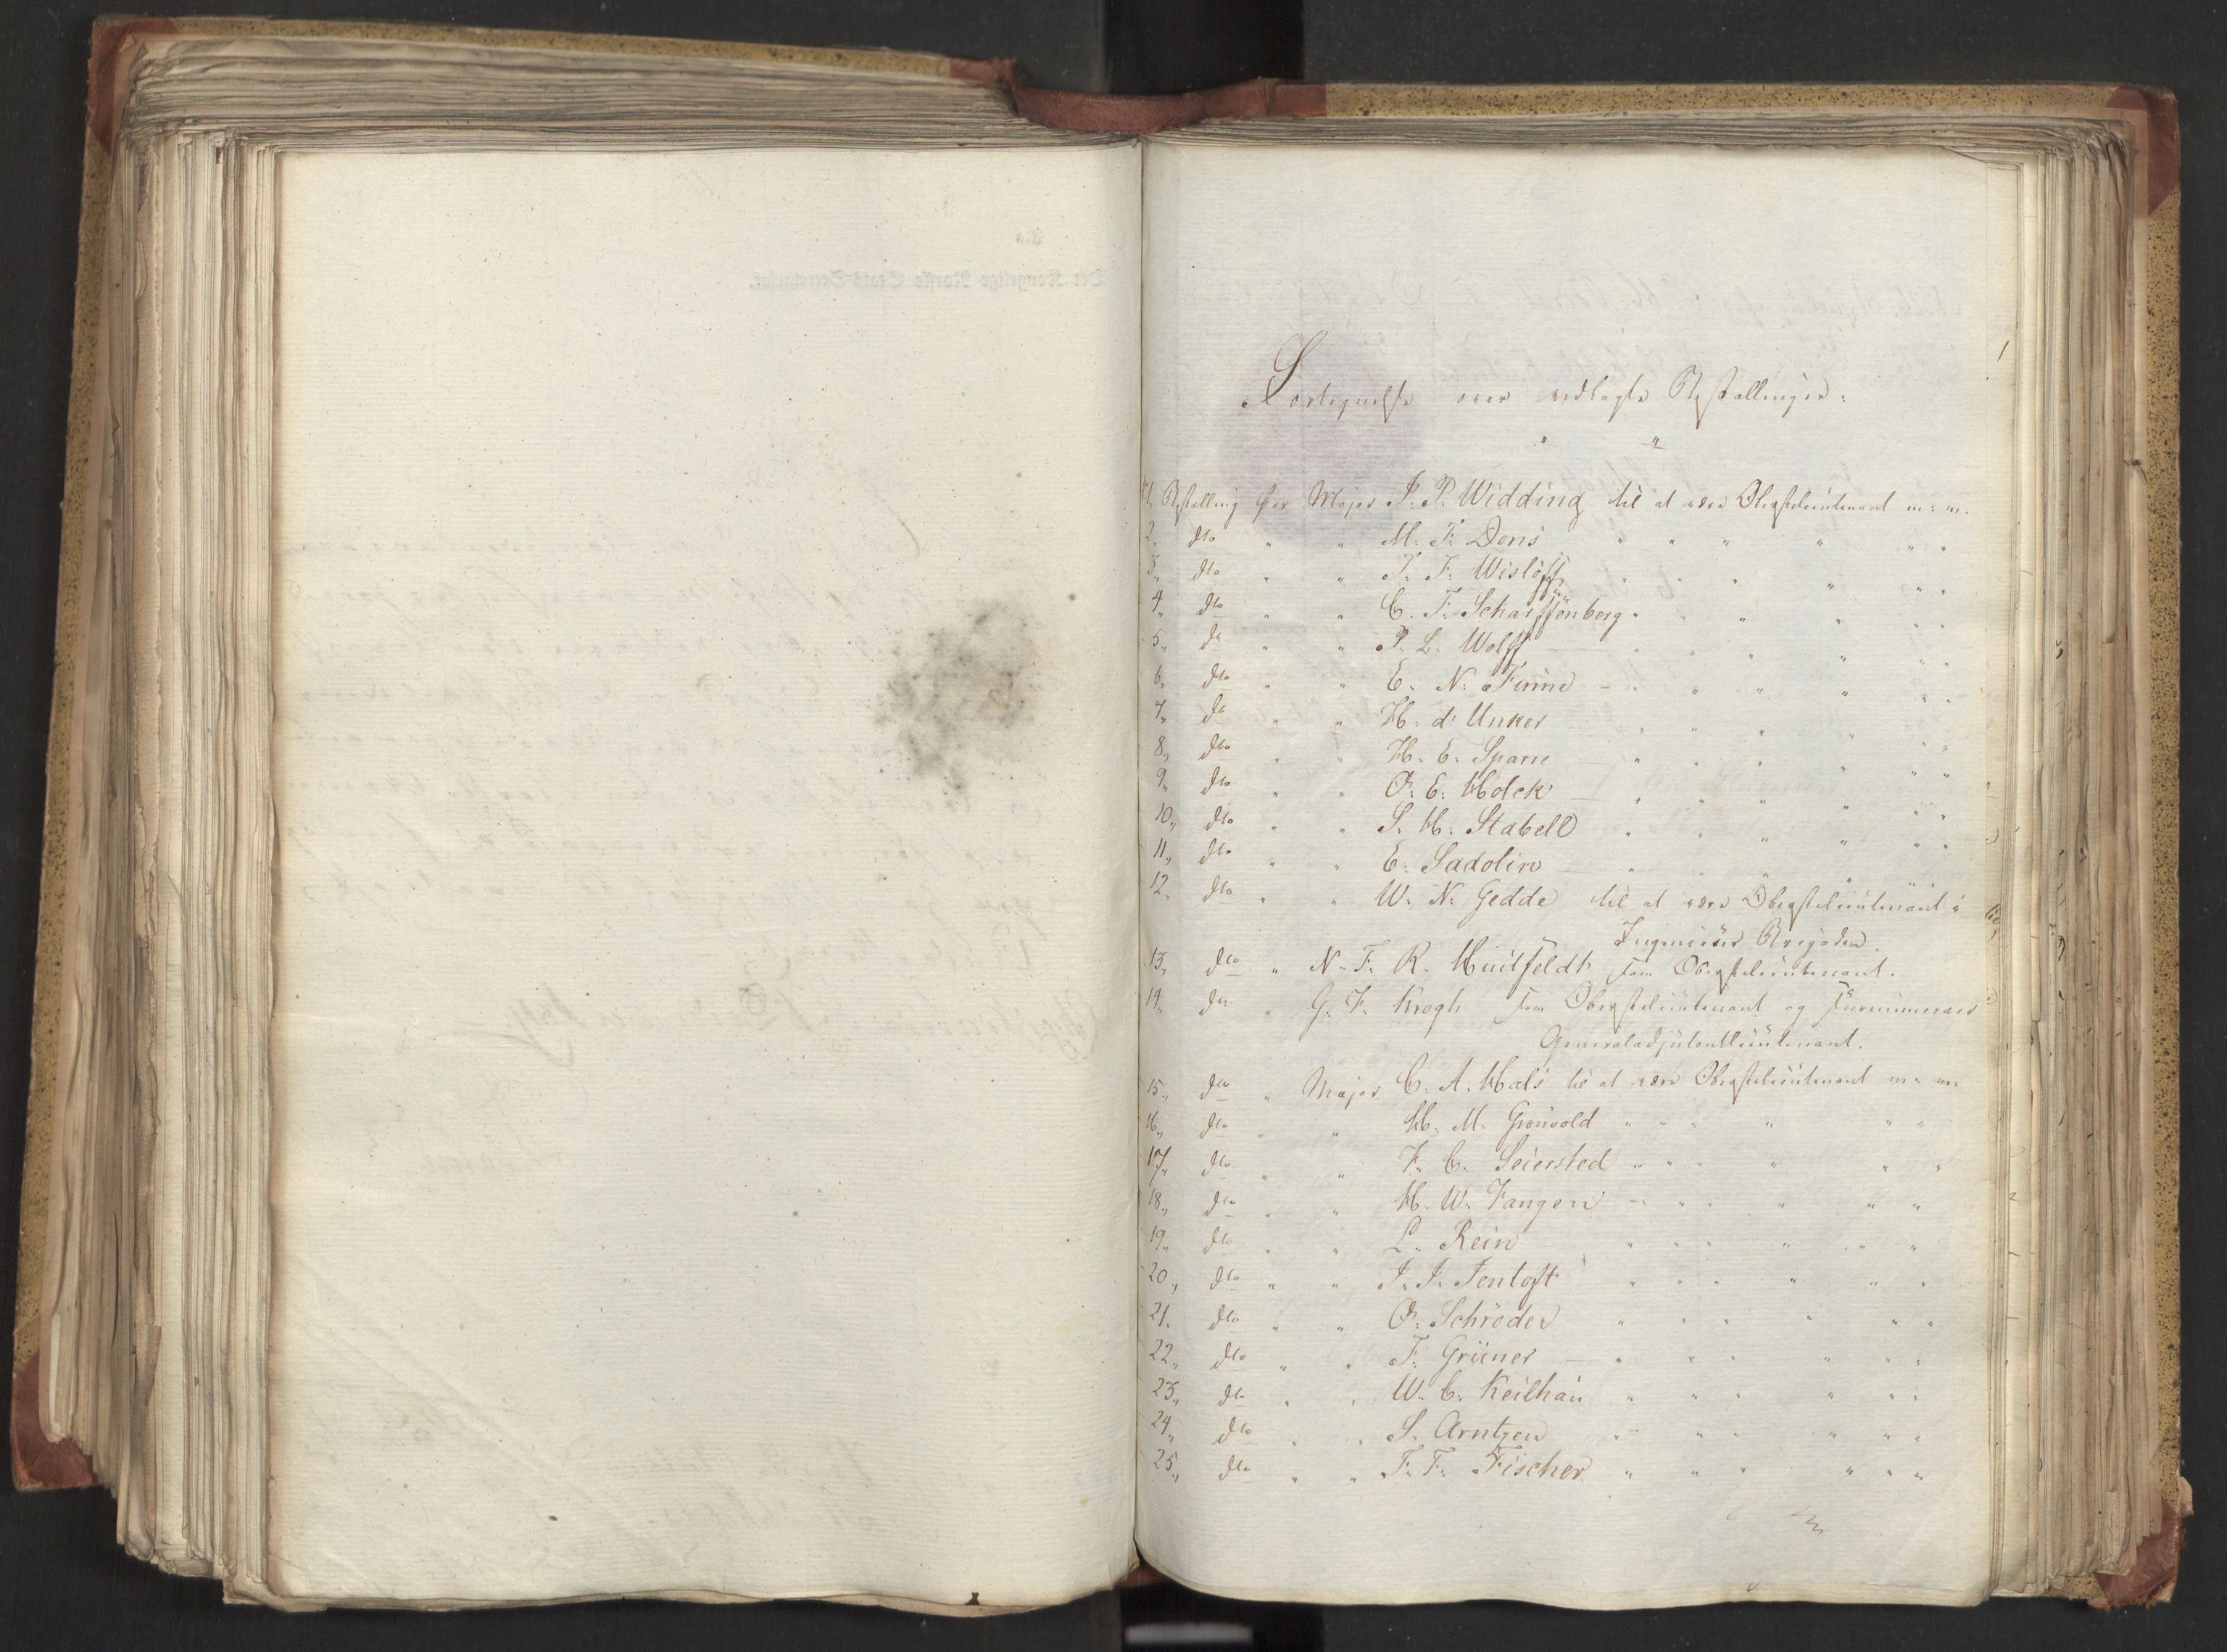 Det Kongelige Norske Stats-Secretariat.
Fortegnelse over vedlagte Bestallinger:
1, Bestalling for Major J. P. Widding til at være Oberstlieutenant m: m:
2, dto " " M. F. Dons " " " " " "
3, dto " " J. F. Wisløff " " " " " "
4, dto " " C. F. Scharffenberg " " " " " "
5, dto " " P. L. Wolff — " " " " " "
6, dto " " E. N. Finne — " " " " " "
7, dto " " H. d'Unker " " " " " "
8, dto " " H. E. Sparre — " " " " " "
9, dto " " O. E. Holck — " " " " " "
10, dto " " S. H. Stabell " " " " " "
11, dto " " E. Sadolin — " " " " " "
12, dto " " W. N. Gedde til at være Oberstlieutenant i
Ingenieur Brigaden.
13, dto " N. F. R. Huitfeldt som Oberstlieutenant.
14, dto " G. F. Krogh som Oberstlieutenant og surnumerær
Generaladjutantlieutenant.
15, dto " Major C. A. Hals til at være Oberstlieutenant m: m:
16, dto " " H. M. Grønvold " " " " " "
17, dto " " F. C. Seiersted " " " " " "
18, dto " " H. W. Fangen — " " " " "
19, dto " " L. Rein " " " " " "
20, dto " " J. J. Jentoft " " " " " "
21, dto " " O. Schrøder " " " " " "
22, dto " " F. Grüner — " " " " " "
23, dto " " W. C. Keilhau " " " " " "
24, dto " " S. Arntzen " " " " " "
25, dto " " F. F. Fischer " " " " " "